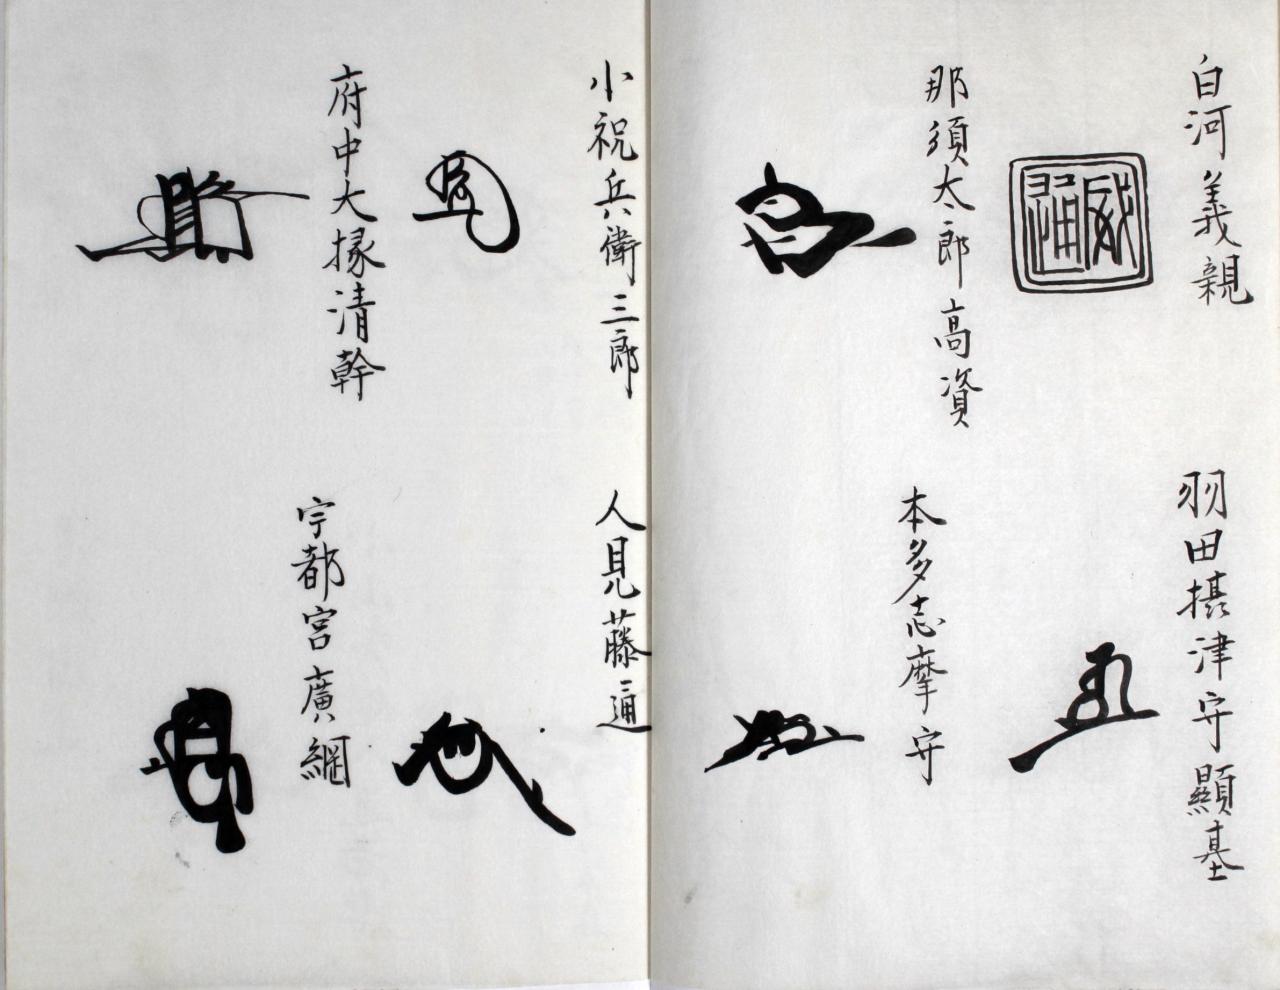 白河義親
羽田摂津守顯基
那須太郎高資
本多志摩守
小祝兵衛三郎
人見藤通
府中大掾清幹
宇都宮廣綱